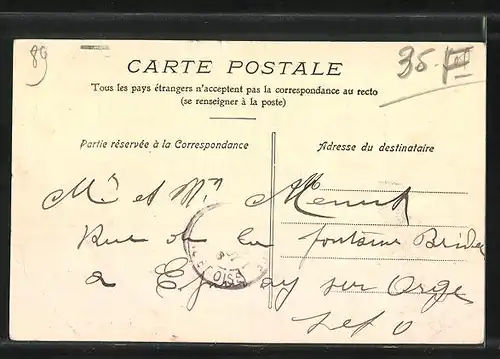 89
35
CARTE POSTALE
Tous les pays étrangers n'acceptent pas la correspondance au recto
(se renseigner à la poste)
Partie réservée à la Correspondance
Adresse du destinataire
Mr et Mme
Rue de la fontaine
a Epinay sur Orge
S et O